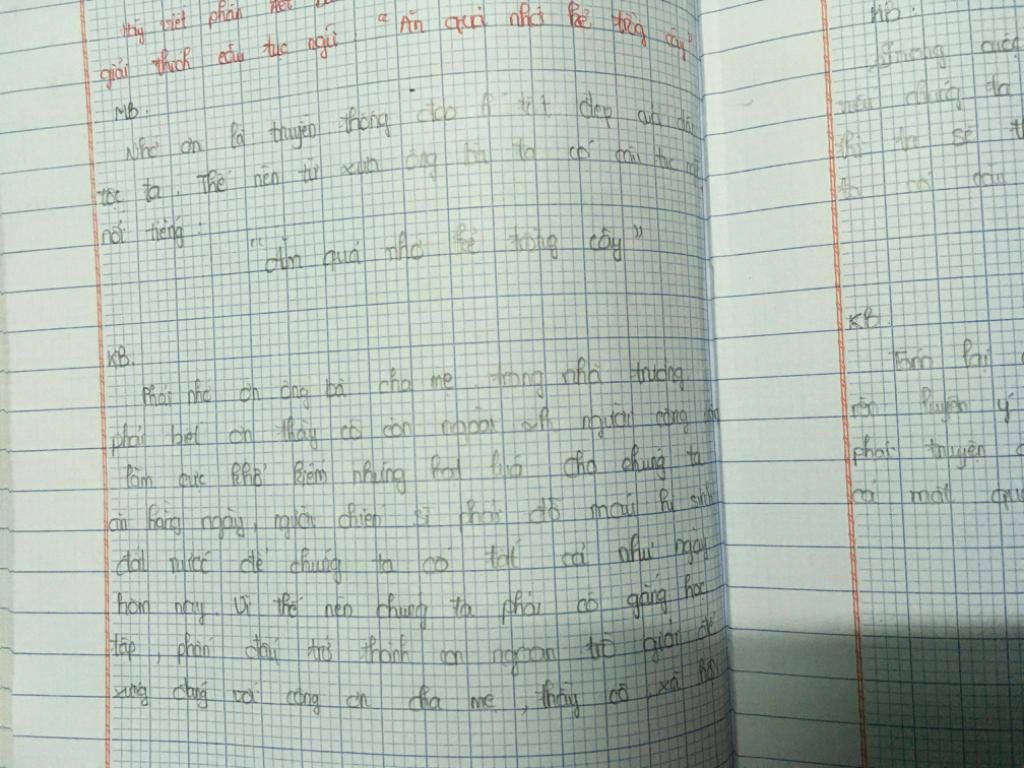 Hãy viết phần kết
giải thích câu tục ngữ "Ăn quả nhớ kẻ trồng cây"
MB.
Nhớ ơn là truyền thống đạo lí tốt đẹp của dân
tộc ta. Thế nên từ xưa ông bà ta có câu tục ngữ
nổi tiếng:
"Ăn quả nhớ kẻ trồng cây"
KB.
Phải nhớ ơn ông bà cha mẹ, trong nhà trường
phải biết ơn thầy cô còn ngoài người công
làm cực khổ kiếm những hạt lúa cho chúng ta
ăn hằng ngày, người chiến sĩ phải đổ máu hi sinh
đất nước để chúng ta có tất cả như ngày
hôm nay. Vì thế nên chúng ta phải cố gắng học
tập, phấn đấu trở thành con ngoan trò giỏi để
xứng đáng với công ơn cha mẹ, thầy cô, xã hội
MB:
Trong cuộc
nếu chúng ta
thì ta sẽ
KB.
Tóm lại
rèn luyện ý
phát truyện
có một